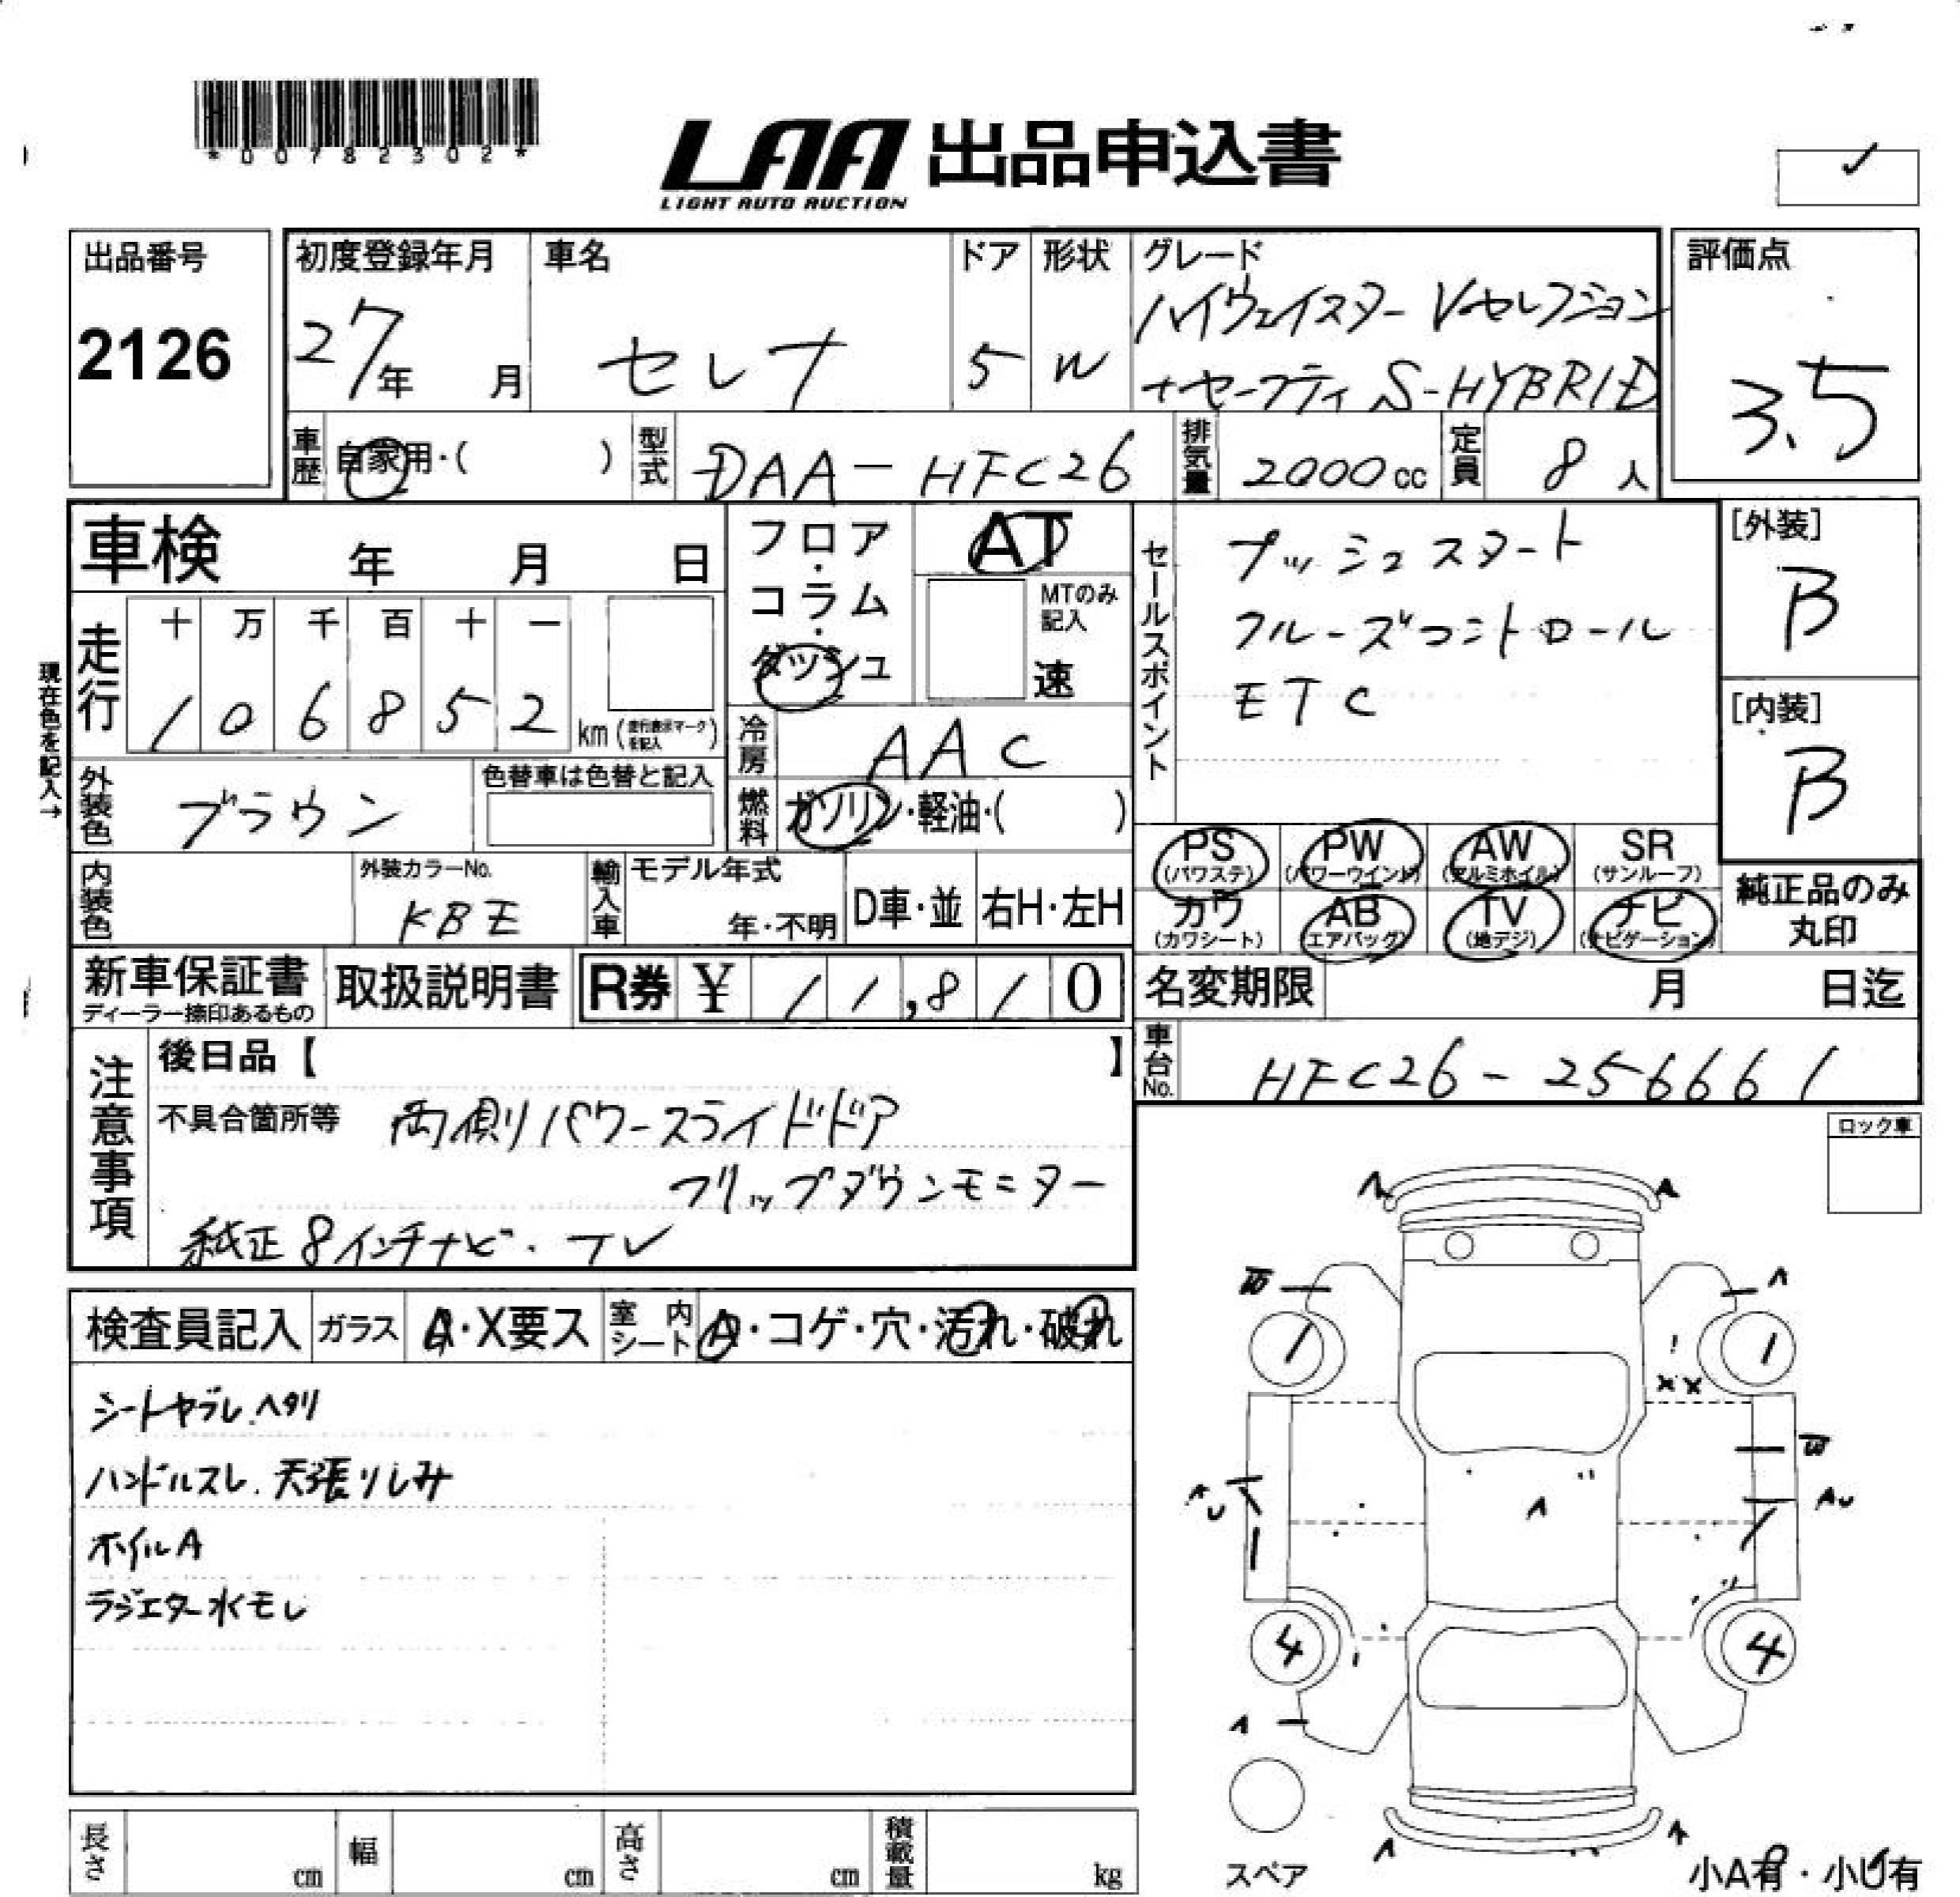 *00782302*
LAA 出品申込書
LIGHT AUTO AUCTION
出品番号
2126
初度登録年月
27年 月
車名
セレナ
ドア
5
形状
W
グレード
ハイウェイスター Vセレクション
+セーフティ S-HYBRID
評価点
3.5
車歴
自家用・( )
型式
DAA-HFC26
排気量
2000cc
定員
8人
車検 年 月 日
走行
十 万 千 百 十 一
1 0 6 8 5 2 km (走行表示マークを記入)
現在色を記入→
フロア・コラム・ダッシュ
AT
MTのみ記入
速
冷房
AAC
燃料
ガソリン・軽油・( )
セールスポイント
プッシュスタート
クルーズコントロール
ETC
[外装]
B
[内装]
B
外装色
ブラウン
色替車は色替と記入
内装色
外装カラーNo.
KBE
輸入車
モデル年式
年・不明
D車・並
右H・左H
PS (パワステ)
PW (パワーウインド)
AW (アルミホイル)
SR (サンルーフ)
カワ (カワシート)
AB (エアバッグ)
TV (地デジ)
ナビ (ナビゲーション)
純正品のみ
丸印
新車保証書
ディーラー捺印あるもの
取扱説明書
R券 ¥ 11,810
名変期限 月 日迄
車台No.
HFC26-256661
注意事項
後日品【 】
不具合箇所等 両側パワースライドドア
フリップダウンモニター
純正8インチナビ・TV
ロック車
検査員記入
ガラス
A・X要ス
室内シート
A・コゲ・穴・汚れ・破れ
シートヤブレ.ヘタリ
ハンドルスレ.天張りしみ
ホイルA
ラジエター水モレ
A A
W A
1 1
XX
W
AU AU
A
4 4
A
A A
スペア
小A有・小U有
長さ cm
幅 cm
高さ cm
積載量 kg